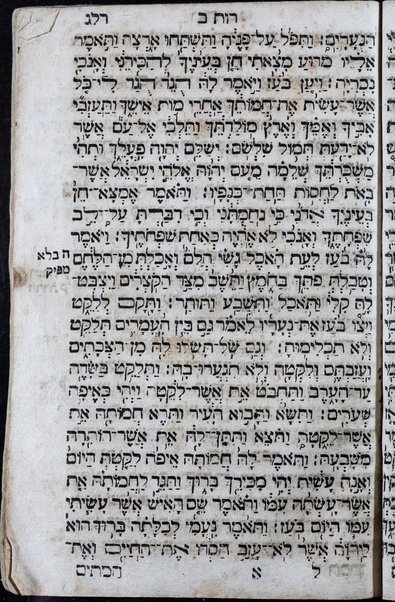 רות ב רלג
הנערים׃ ותפל על־פניה ותשתחו ארצה ותאמר
אליו מדוע מצאתי חן בעיניך להכירני ואנכי
נכריה׃ ויען בעז ויאמר לה הגד הגד לי כל
אשר־עשית את־חמותך אחרי מות אישך ותעזבי
אביך ואמך וארץ מולדתך ותלכי אל־עם אשר
לא־ידעת תמול שלשם׃ ישלם יהוה פעלך ותהי
משכרתך שלמה מעם יהוה אלהי ישראל אשר־
באת לחסות תחת־כנפיו׃ ותאמר אמצא־חן
בעיניך אדני כי נחמתני וכי דברת על־לב
שפחתך ואנכי לא אהיה כאחת שפחתיך׃ ויאמר
לה בעז לעת האכל גשי הלם ואכלת מן־הלחם
וטבלת פתך בחמץ ותשב מצד הקצרים ויצבט־
לה קלי ותאכל ותשבע ותותר׃ ותקם ללקט
ויצו בעז את־נעריו לאמר גם בין העמרים תלקט
ולא תכלימוה׃ וגם של־תשלו לה מן־הצבתים
ועזבתם ולקטה ולא תגערו־בה׃ ותלקט בשדה
עד־הערב ותחבט את אשר־לקטה ויהי כאיפה
שערים׃ ותשא ותבוא העיר ותרא חמותה את
אשר־לקטה ותוצא ותתן־לה את אשר־הותרה
משבעה׃ ותאמר לה חמותה איפה לקטת היום
ואנה עשית יהי מכירך ברוך ותגד לחמותה את
אשר־עשתה עמו ותאמר שם האיש אשר עשיתי
עמו היום בעז׃ ותאמר נעמי לכלתה ברוך הוא
ליהוה אשר לא־עזב חסדו את־החיים ואת־
ל א המתים
ה בלא
מפיק